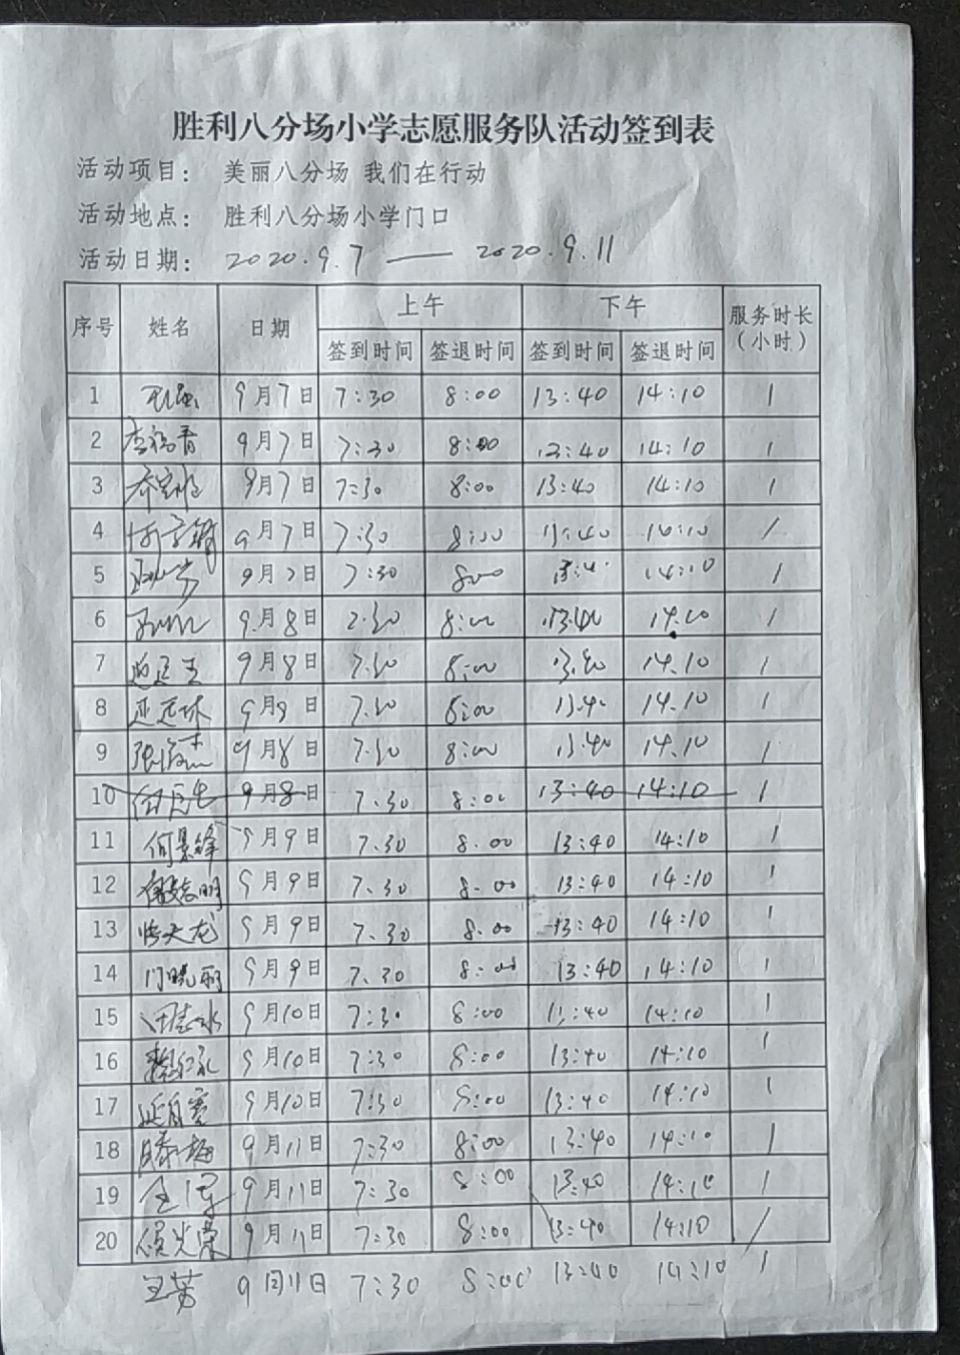 胜利八分场小学志愿服务队活动签到表
活动项目： 美丽八分场 我们在行动
活动地点： 胜利八分场小学门口
活动日期： 2020.9.7 —— 2020.9.11
序号 姓名 日期 上午 下午 服务时长（小时）
签到时间 签退时间 签到时间 签退时间
1 9月7日 7:30 8:00 13:40 14:10 1
2 9月7日 7:30 8:00 13:40 14:10 1
3 9月7日 7:30 8:00 13:40 14:10 1
4 9月7日 7:30 8:00 13:40 14:10 1
5 9月7日 7:30 8:00 14:10 1
6 9月8日 8:00 13:40 1
7 9月8日 7.30 8:00 13.40 14.10 1
8 7.30 8:00 13.40 14.10 1
9 9月8日 7.30 8:00 13.40 14.10 1
10 9月8日 7.30 8:00 13:40 14:10 1
11 何景峰 9月9日 7.30 8.00 13:40 14:10 1
12 9月9日 7.30 8.00 13:40 14:10 1
13 9月9日 7.30 8.00 13:40 14:10 1
14 门晓丽 9月9日 7.30 8:00 13:40 14:10 1
15 9月10日 7:30 8:00 13:40 14:10 1
16 9月10日 7:30 8:00 13:40 14:10 1
17 9月10日 7:30 8:00 13:40 14:10 1
18 滕梅 9月11日 7:30 8:00 13:40 14:10 1
19 9月11日 7:30 8:00 13:40 14:10 1
20 侯光荣 9月11日 7:30 8:00 13:40 14:10 1
王芳 9月11日 7:30 8:00 13:40 14:10 1